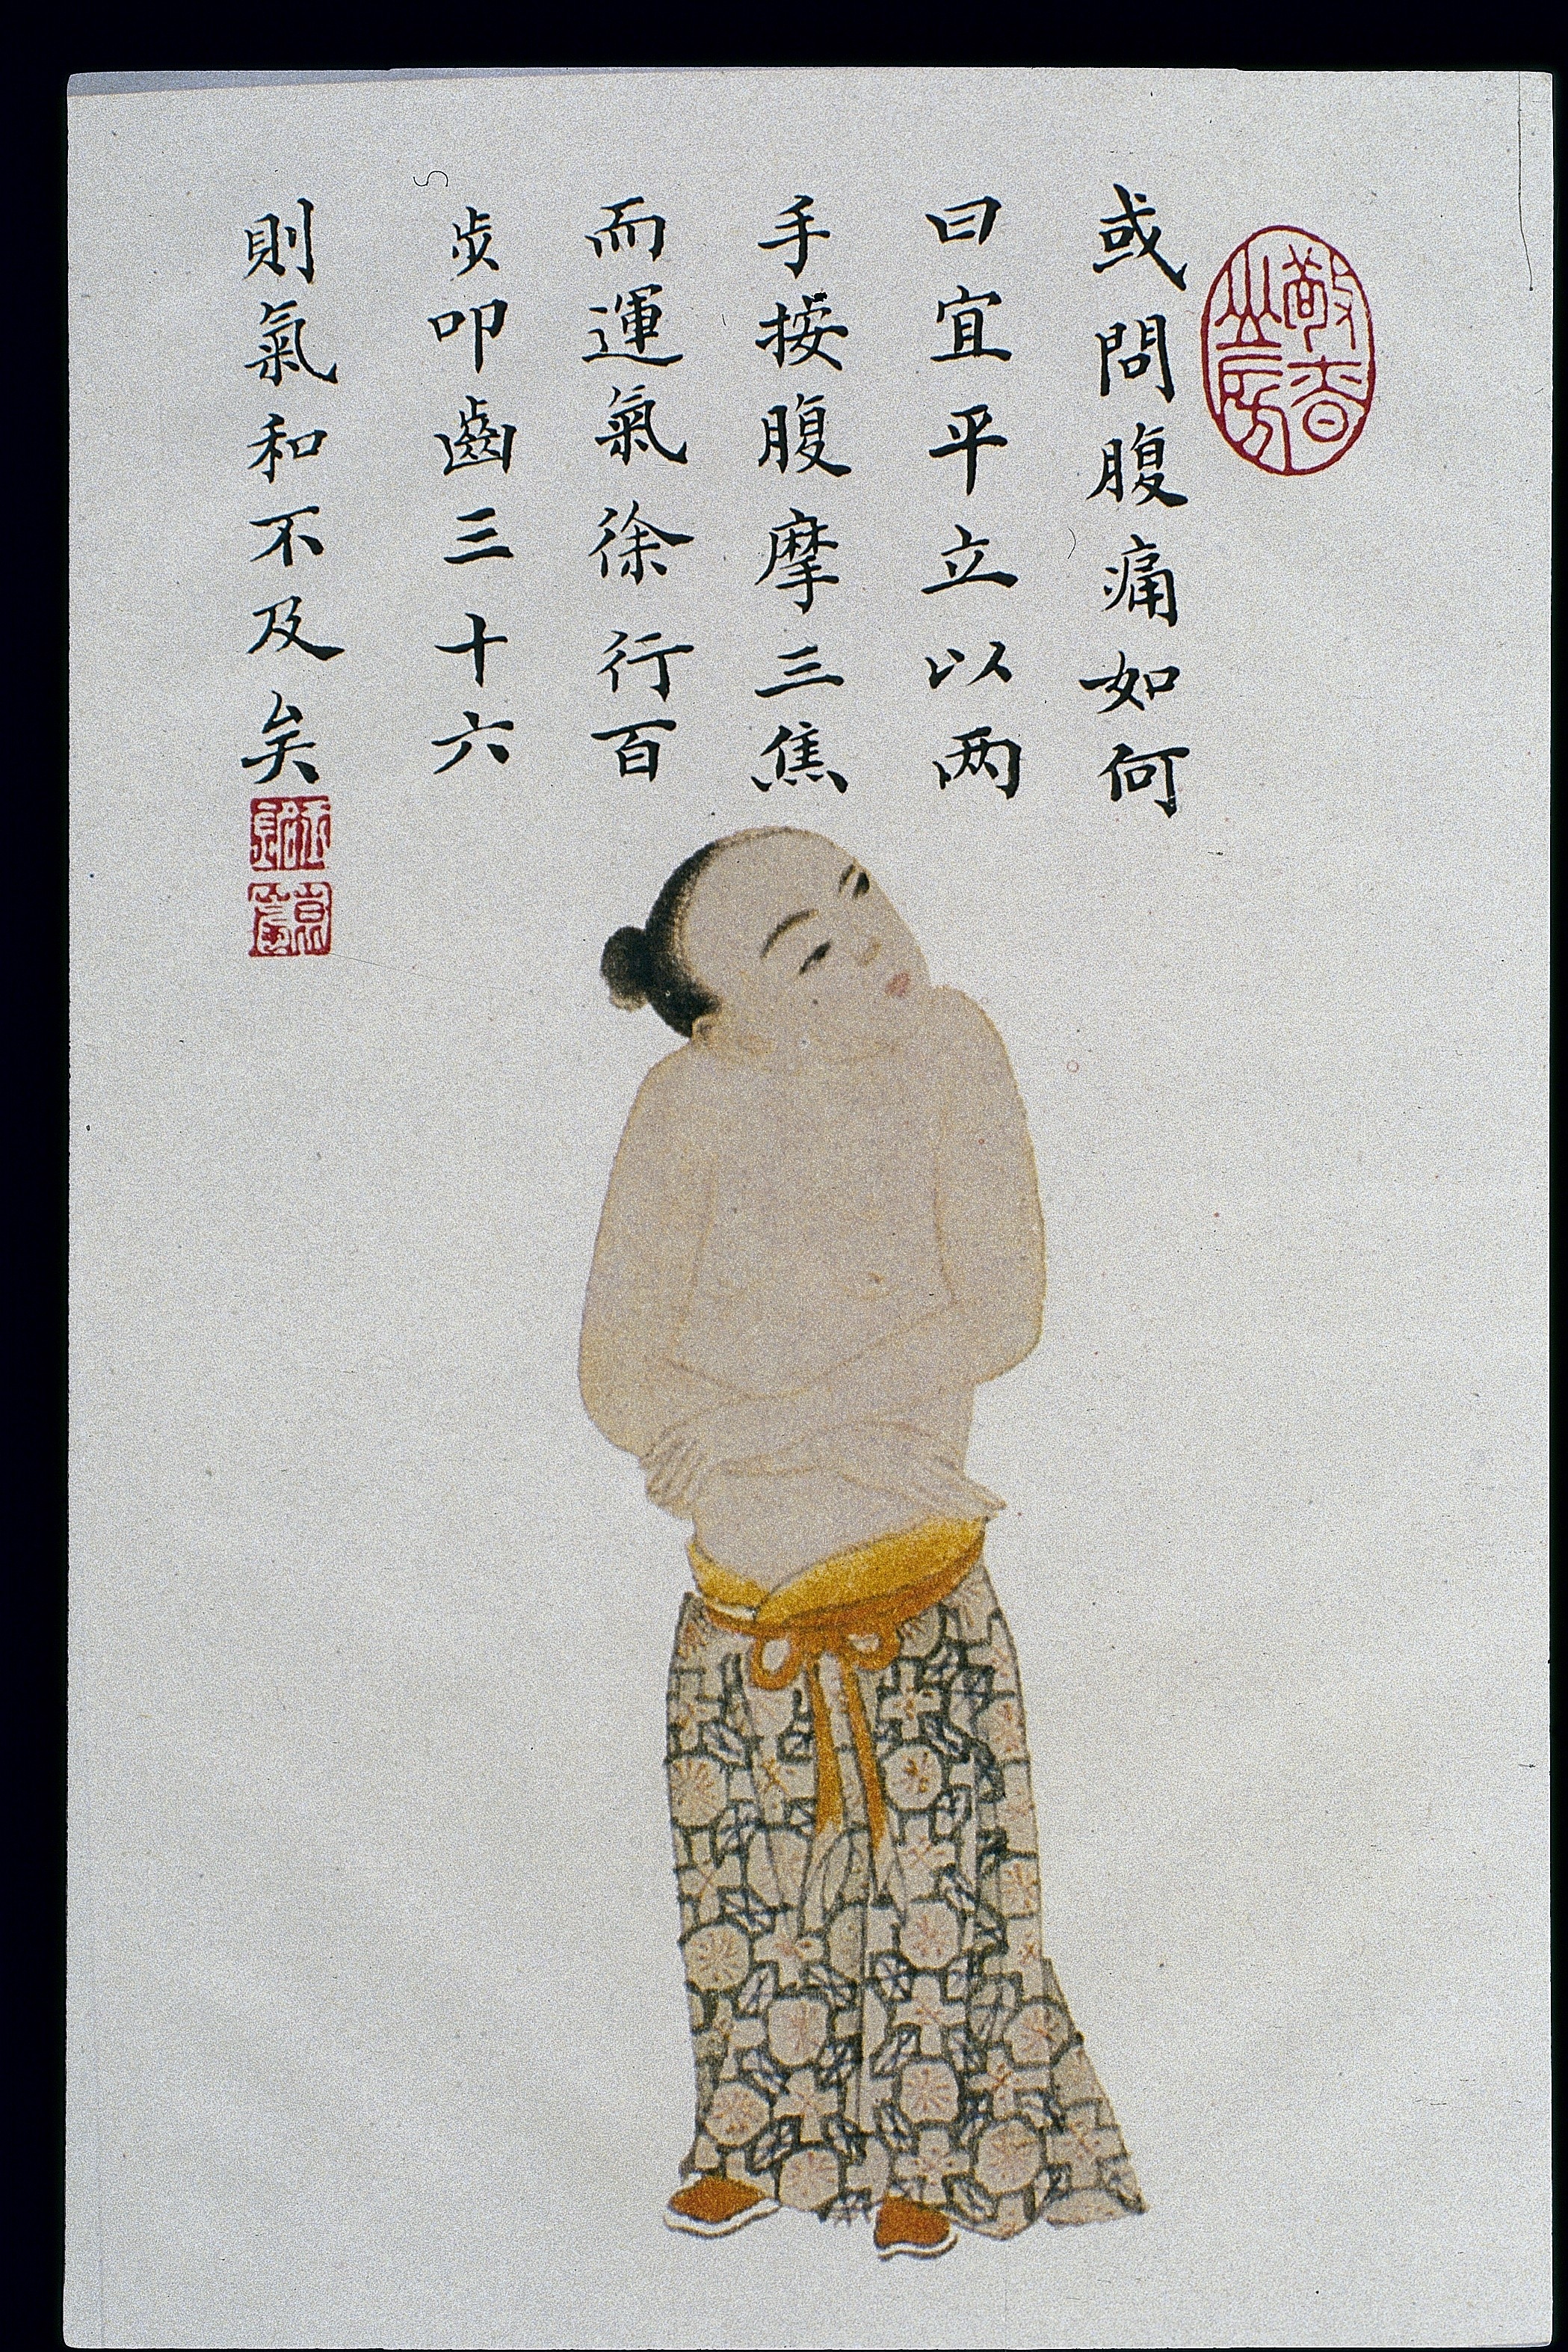 或問腹痛如何
曰宜平立以两
手按腹摩三焦
而運氣徐行百
步叩齒三十六
則氣和不及矣